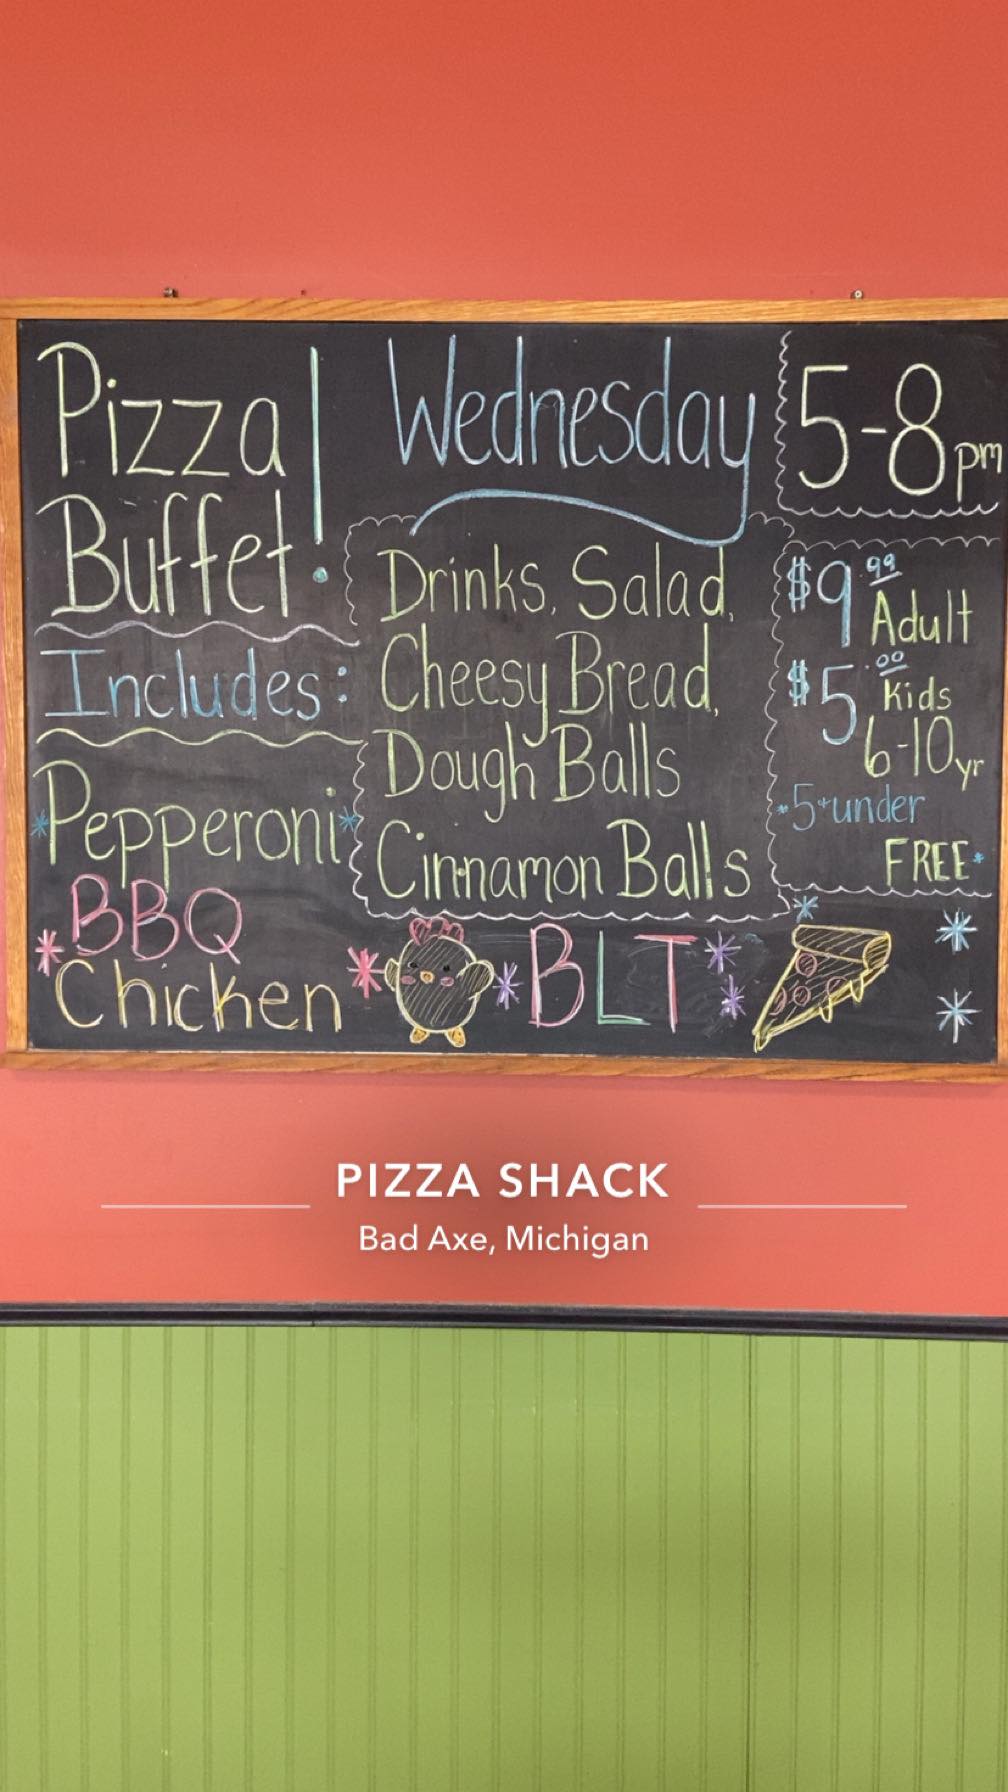 Pizza
Buffet!
Wednesday
5-8pm
Includes:
Drinks, Salad,
Cheesy Bread,
Dough Balls
Cinnamon Balls
$9.99
Adult
$5.00
Kids
6-10yr
*5+under
FREE*
*Pepperoni*
BBQ
*Chicken*
*BLT*
PIZZA SHACK
Bad Axe, Michigan